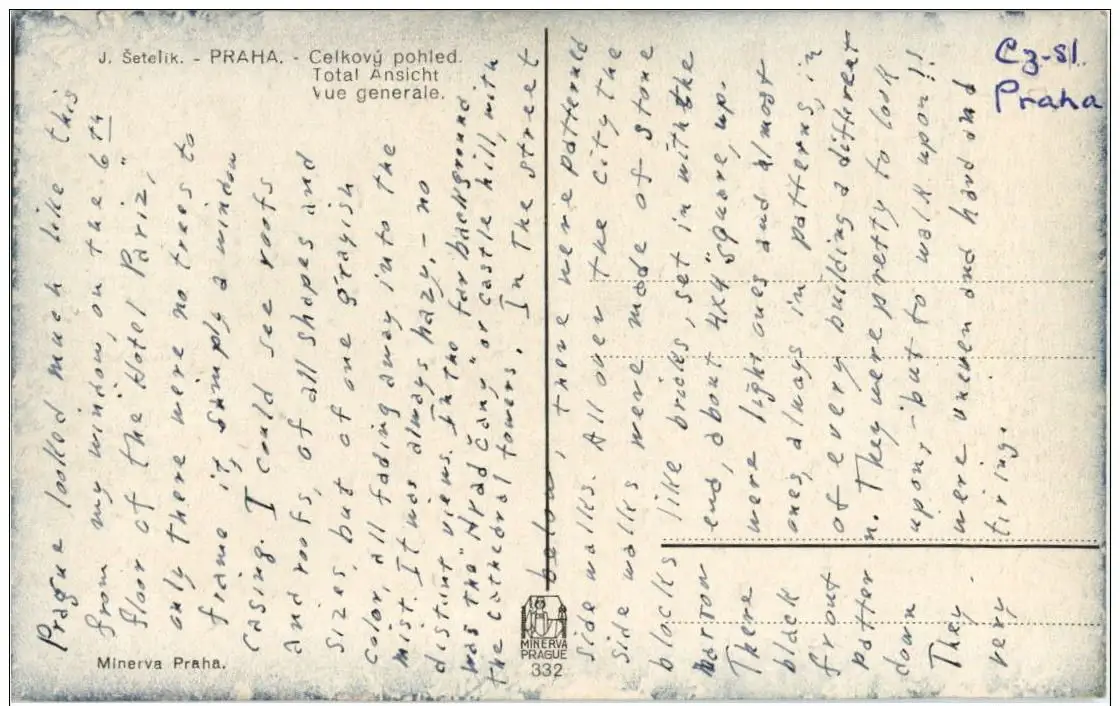 J. Šetelík. - PRAHA. - Celkový pohled.
Total Ansicht
Vue generale.
Cz-sl.
Praha
Prague looked much like this
from my window, on the 6th
floor of the Hotel Pariz,"
only there were no trees to
frame it, simply a window
casing. I could see roofs
and roofs, of all shapes and
sizes, but of one grayish
color, all fading away into the
mist. It was always hazy, - no
distant views. In the far background
was the "Hradčany" or castle hill, with
the cathedral towers. In the street
below, there were patterned
side walks. All over the city the
side walks were made of stone
blocks like bricks, set in with the
narrow end, about 4x4" square, up.
There were light ones and almost
black ones, always in patterns, in
front of every building a different
pattern. They were pretty to look
down upon, - but to walk upon!!
They were uneven and hard and
very tiring.
Minerva Praha.
MINERVA
PRAGUE
332